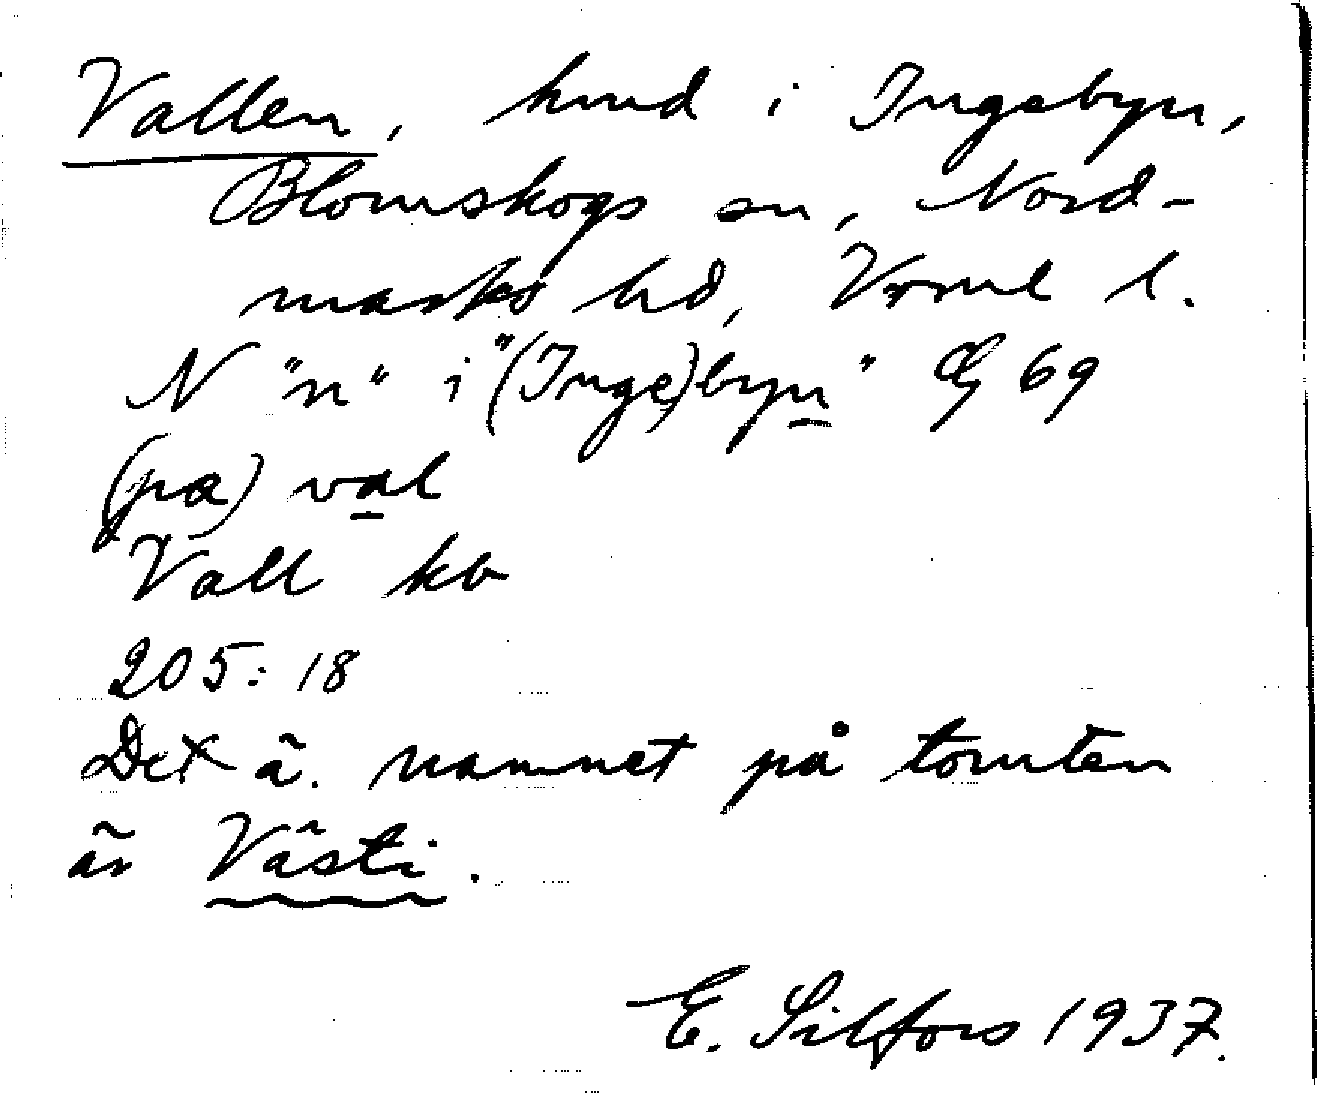 Vallen, hmd i Ingebyn,
Blomskogs sn, Nord-
marks hd, Värml l.
N "n" i "(Inge)byn" 69
(pa) val
Vall kb
205:18
Det ä. namnet på tomten
är Västi.
E. Silfors 1937.